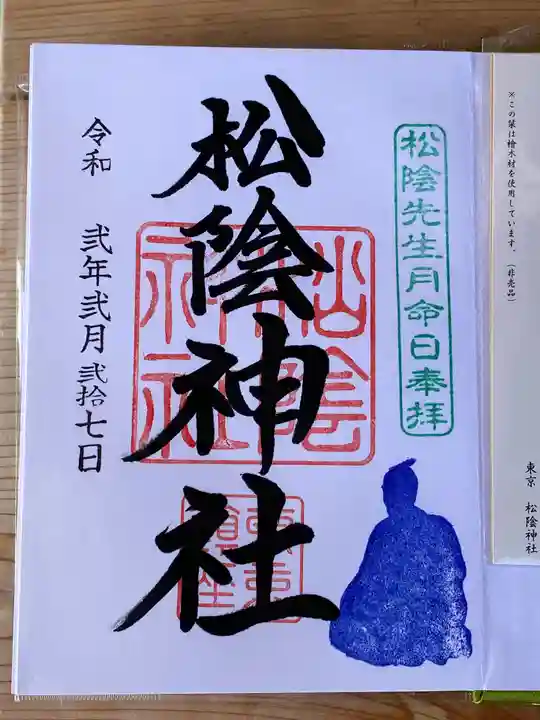 ※この栞は檜木材を使用しています。（非売品）
東京　松陰神社
松陰先生月命日奉拝
松陰神社
松陰神社
令和　弐年弐月弐拾七日